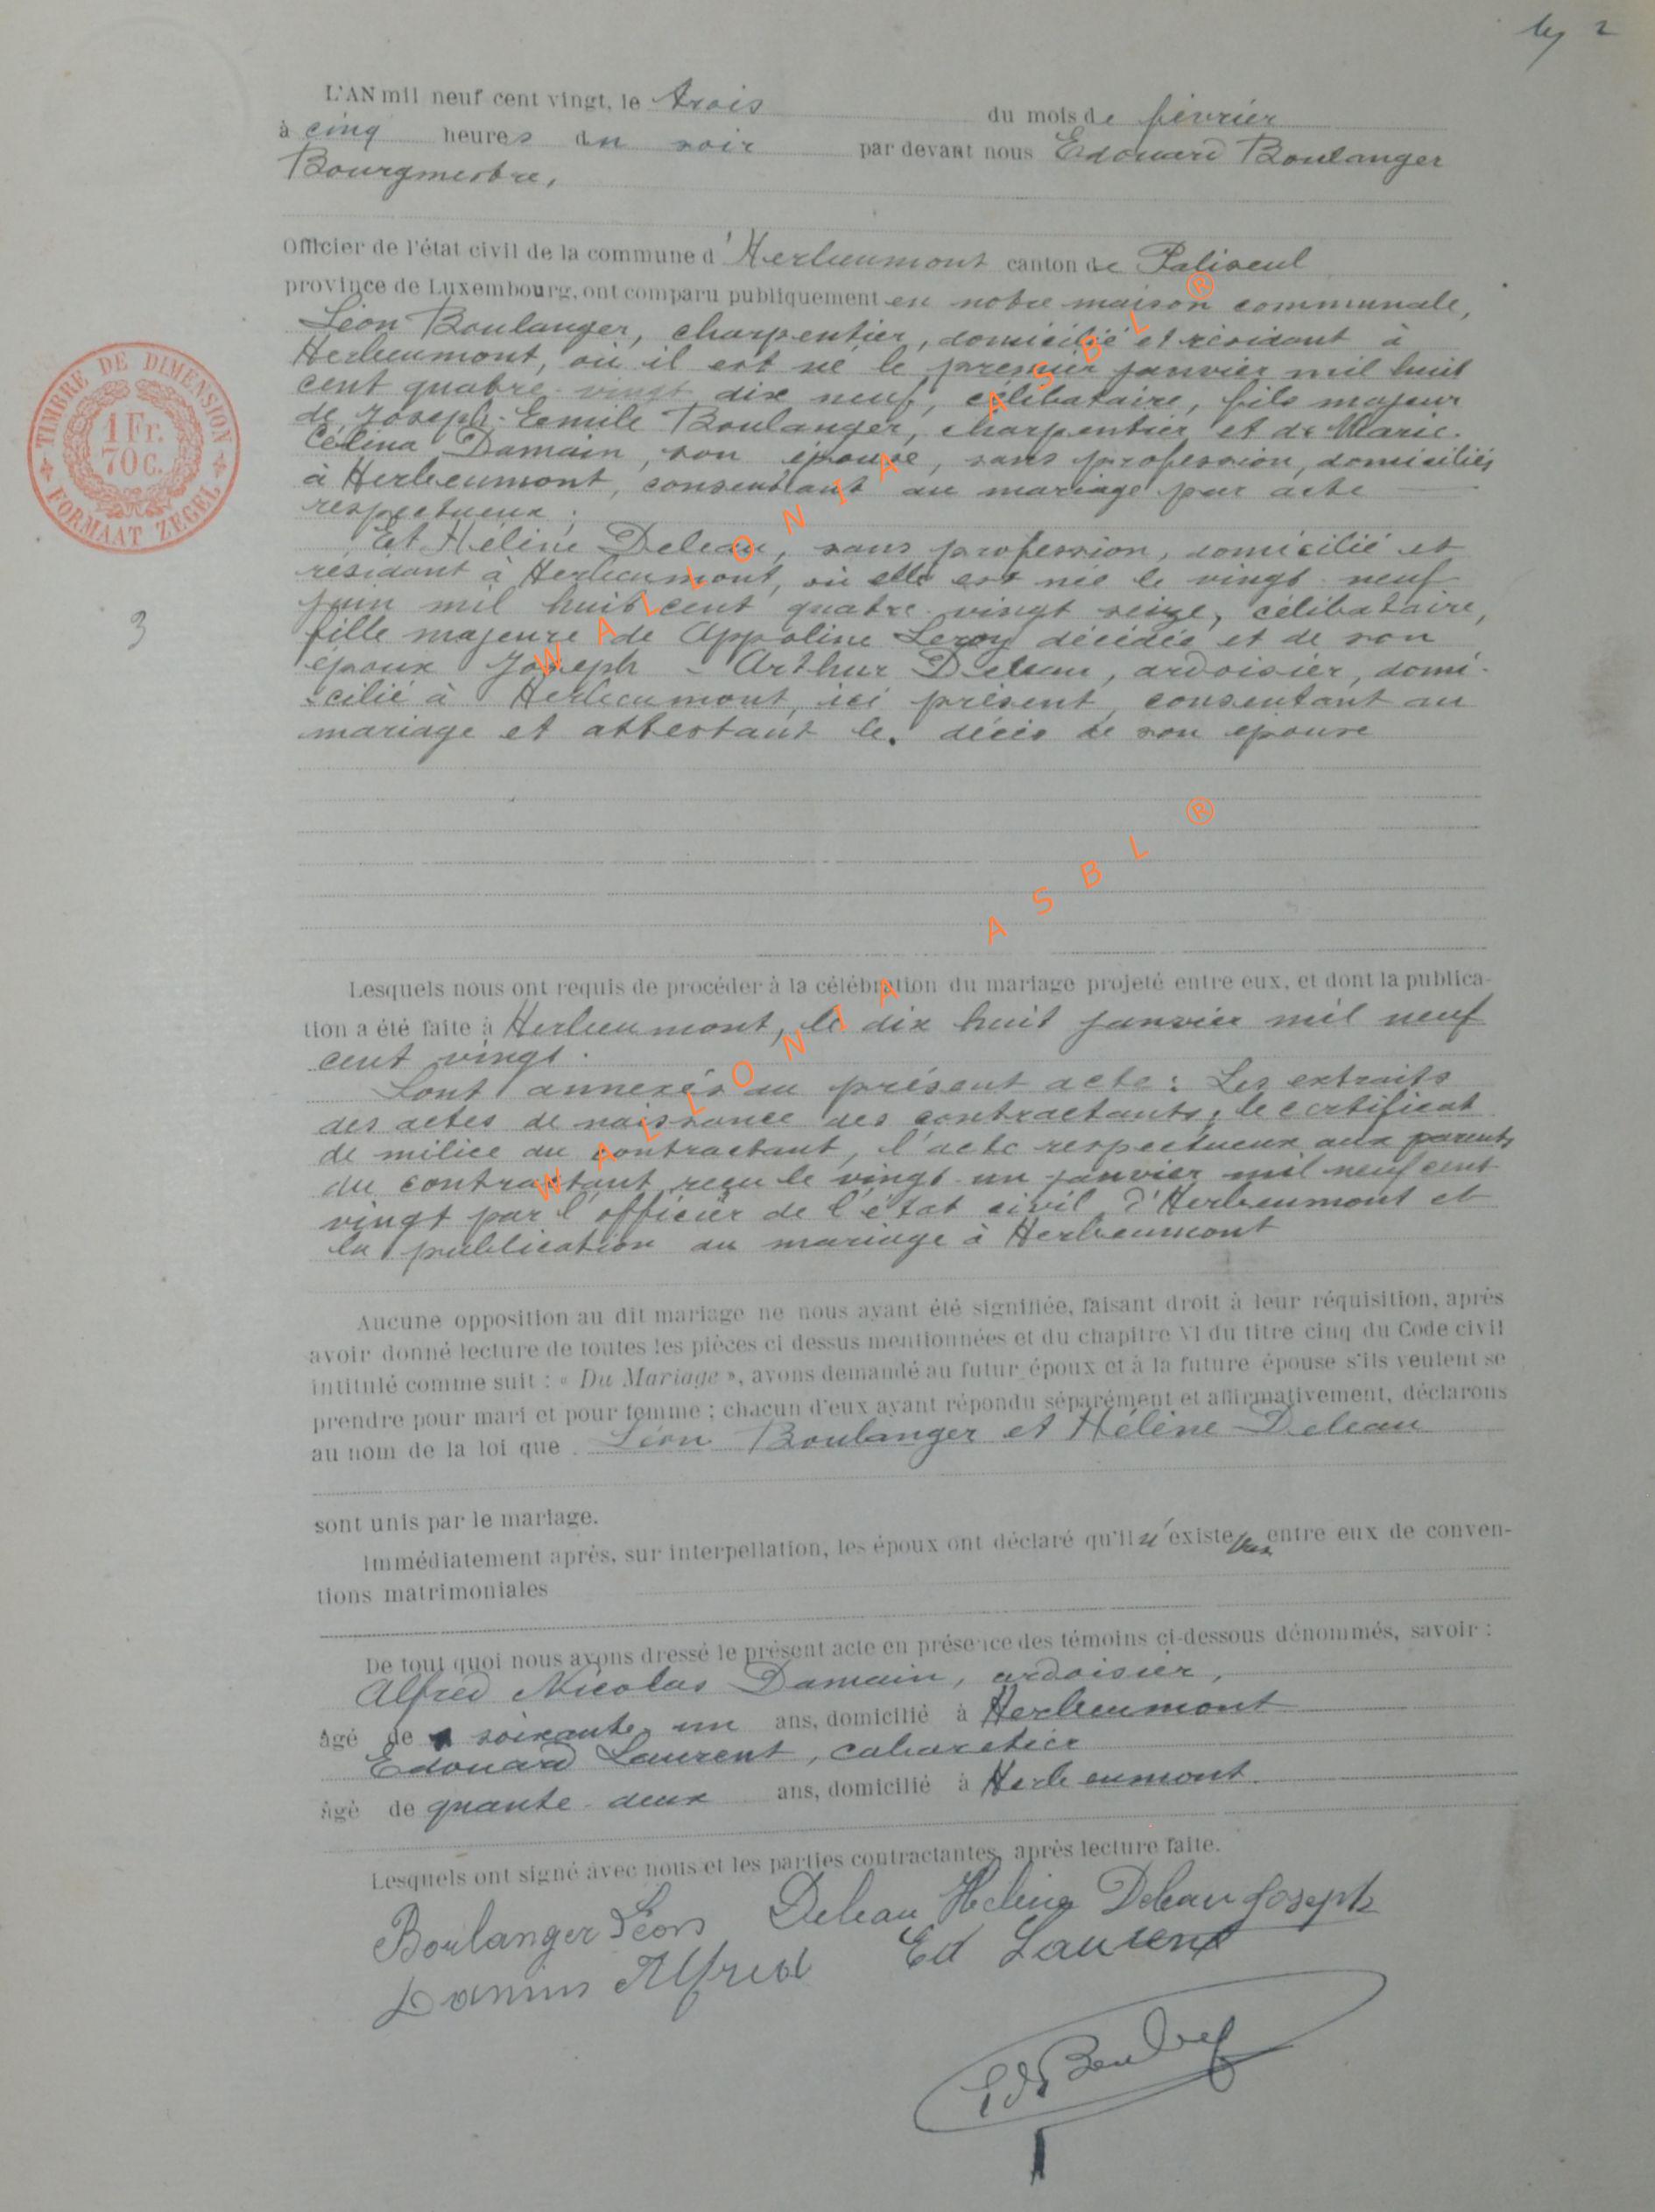 L'AN mil neuf cent vingt, le trois du mois de février
à cinq heures du soir par devant nous Edouard Boulanger
Bourgmestre,
Officier de l'état civil de la commune d'Herbeumont canton de Paliseul
province de Luxembourg, ont comparu publiquement en notre maison communale,
Léon Boulanger, charpentier, domicilié et résidant à
Herbeumont, où il est né le premier janvier mil huit
cent quatre-vingt dix neuf, célibataire, fils majeur
de Joseph-Eemile Boulanger, charpentier et de Marie-
Célina Damain, son épouse, sans profession, domiciliés
à Herbeumont, consentant au mariage par acte
respectueux ;
Et Hélène Deleau, sans profession, domicilié et
résidant à Herbeumont, où elle est née le vingt-neuf
juin mil huit cent quatre-vingt seize, célibataire,
fille majeure de Appoline Leroy décédée et de son
époux Joseph-Arthur Deleau, ardoisier, domi-
cilié à Herbeumont, ici présent, consentant au
mariage et attestant le décès de son épouse
Lesquels nous ont requis de procéder à la célébration du mariage projeté entre eux, et dont la publica-
tion a été faite à Herbeumont, le dix huit janvier mil neuf
cent vingt.
Sont annexés au présent acte : Les extraits
des actes de naissance des contractants, le certificat
de milice du contractant, l'acte respectueux aux parents
du contractant reçu le vingt-un janvier mil neuf cent
vingt par l'officier de l'état civil d'Herbeumont et
la publication du mariage à Herbeumont
Aucune opposition au dit mariage ne nous ayant été signifiée, faisant droit à leur réquisition, après
avoir donné lecture de toutes les pièces ci dessus mentionnées et du chapitre VI du titre cinq du Code civil
intitulé comme suit : « Du Mariage », avons demandé au futur époux et à la future épouse s'ils veulent se
prendre pour mari et pour femme ; chacun d'eux ayant répondu séparément et affirmativement, déclarons
au nom de la loi que Léon Boulanger et Hélène Deleau
sont unis par le mariage.
Immédiatement après, sur interpellation, les époux ont déclaré qu'il n'existe pas entre eux de conven-
tions matrimoniales
De tout quoi nous avons dressé le présent acte en présence des témoins ci-dessous dénommés, savoir :
Alfred Nicolas Damain, ardoisier,
âgé de soixante-un ans, domicilié à Herbeumont
Edouard Laurent, cabaretier
âgé de quante-deux ans, domicilié à Herbeumont
Lesquels ont signé avec nous et les parties contractantes, après lecture faite.
Boulanger Léon Deleau Hélène Deleau Joseph
Alfred Ed Laurent
TIMBRE DE DIMENSION
1 Fr.
70 C.
FORMAAT ZEGEL
3
2
WALLONIA ASBL ®
WALLONIA ASBL ®